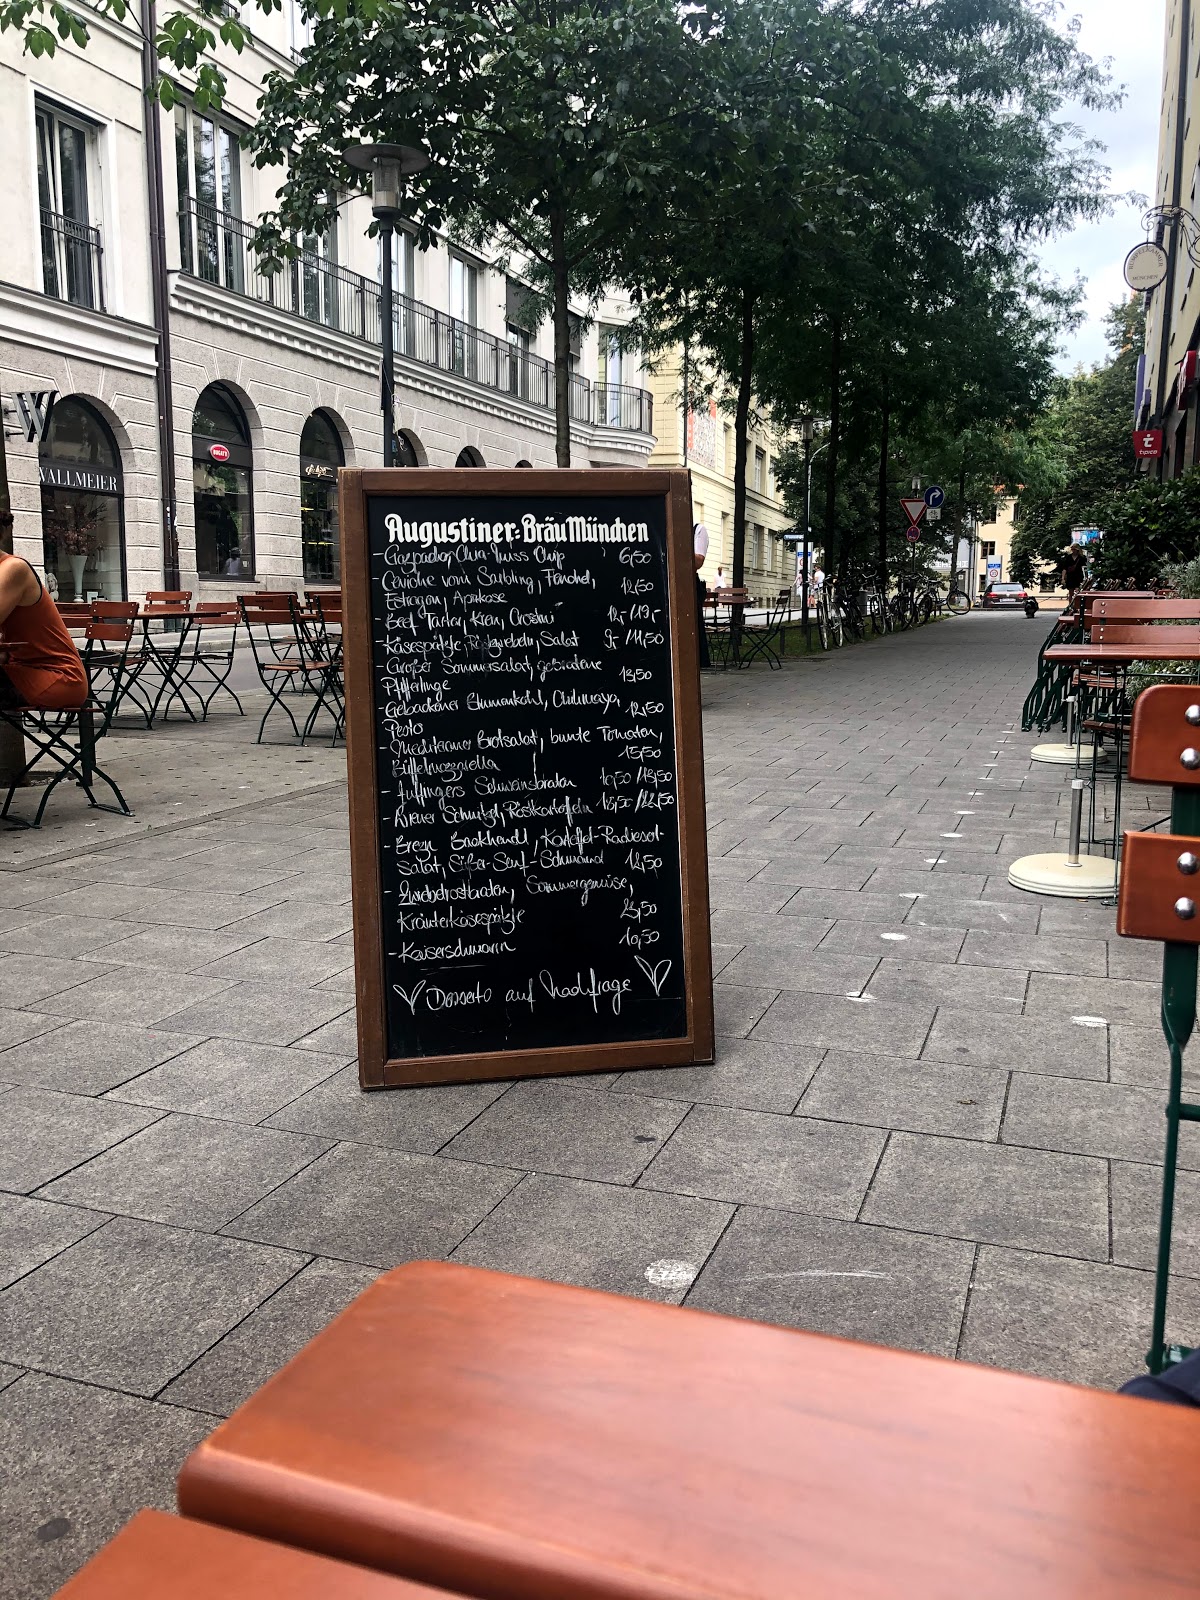 WALLMEIER
BUGATTI
MÜNCHEN
tipico
Augustiner-Bräu München
- Gazpacho, Chia-Nuss Chip 6,50
- Ceviche vom Saibling, Fenchel, 12,50
Estragon, Aprikose
- Beef Tartar, Kren, Crostini 12,- / 19,-
- Käsespätzle, Röstzwiebeln, Salat 9,- / 11,50
- Großer Sommersalat, gebratene
Pfifferlinge 13,50
- Gebackener Blumenkohl, Chilimayo, 12,50
Pesto
- Mediterraner Brotsalat, bunte Tomaten,
Büffelmozzarella 15,50
- Schweinsbraten 10,50 / 13,50
- Wiener Schnitzel, Röstkartoffeln 18,50 / 22,50
- Brezn Backhendl, Kartoffel-Radieserl-
Salat, Süßer-Senf-Schmand 12,50
- Zwiebelrostbraten, Sommergemüse,
Kräuterkäsespätzle 23,50
- Kaiserschmarrn 10,50
Desserts auf Nachfrage